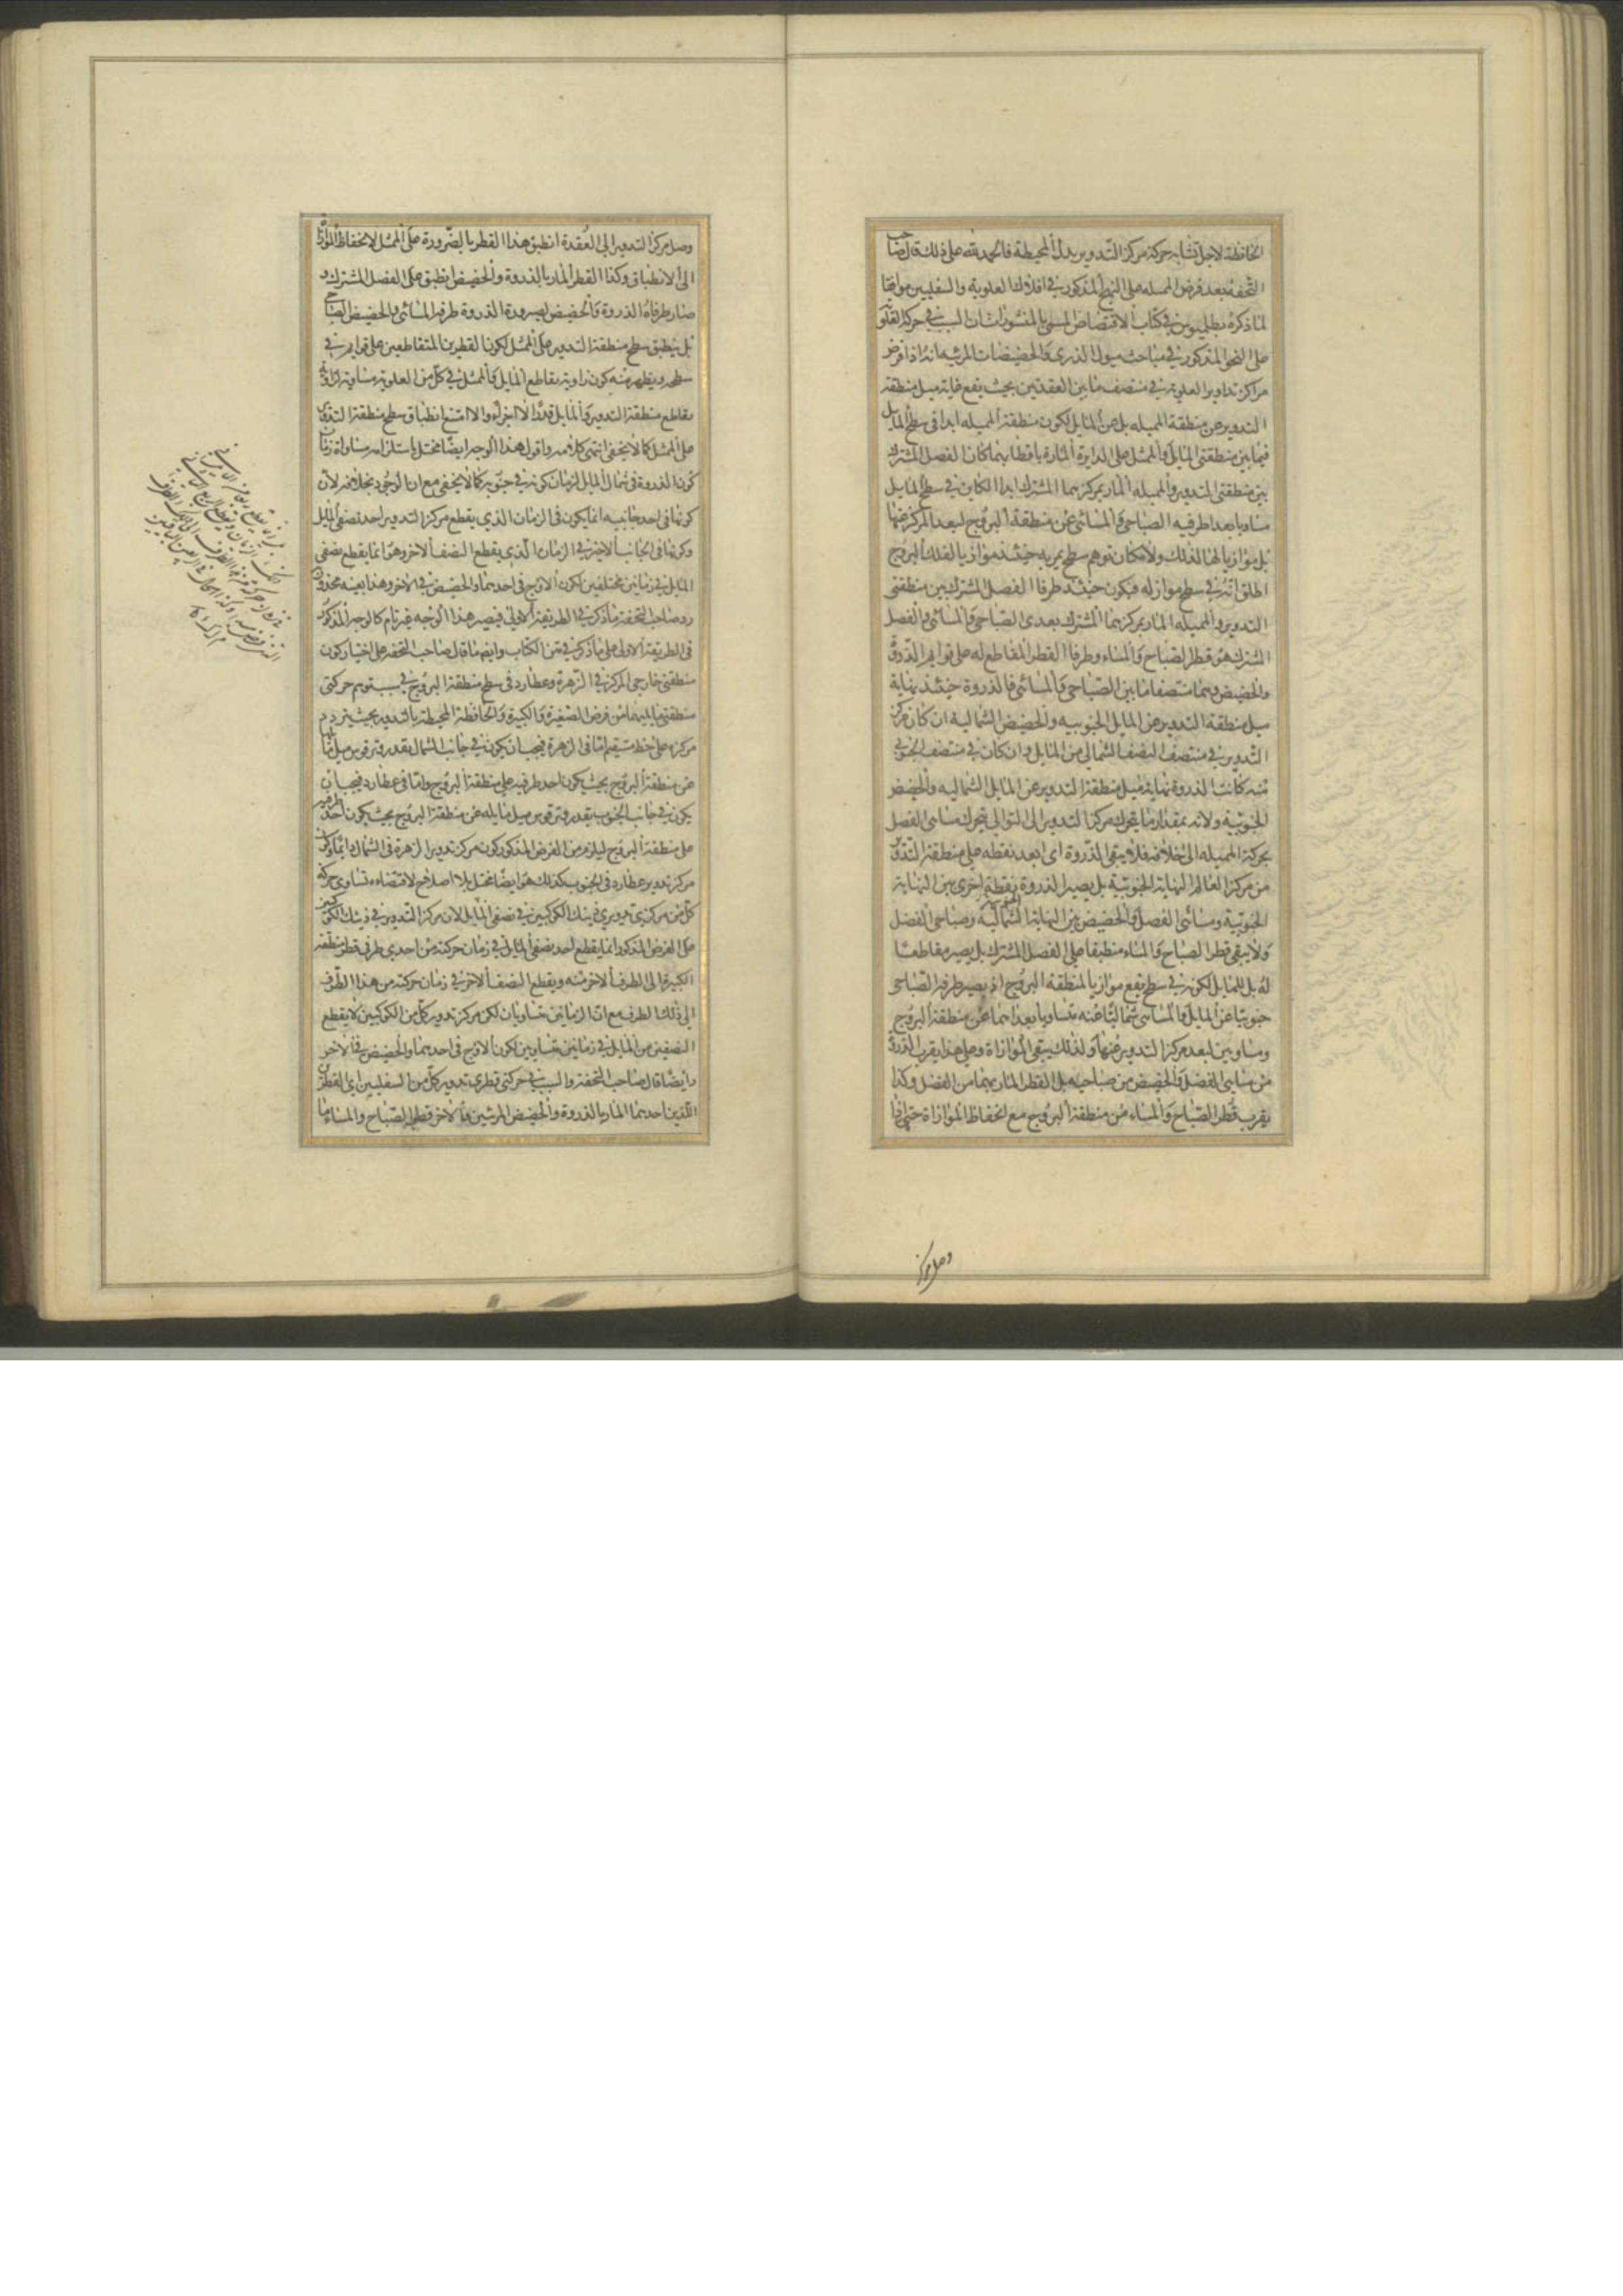 الحافظة لاجل تشابه حركة مركز التدوير بدل المحيطة فالحمد لله على ذلك قال صاحب
التحفة بعد فرض المميله على النهج المذكور في افلاك العلوية والسفليين موافقا
لما ذكره بطلميوس في كتاب الاقتصاص المسمى بالمنشورات ان السبب في حركة العلوية
على النحو المذكور في مباحث ميول الذرى والحضيضات المرئية انه اذا فرض
مراكز تداوير العلوية في منتصف ما بين العقدتين بحيث يقع غاية ميل منطقة
التدوير عن منطقة المميله بل عن المايل لكون منطقة المميله ابدا في سطح المايل
فيما بين منطقتي المايل والممثل على الدايرة المارة باقطابهما كان الفصل المشترك
بين منطقتي التدوير والمميله المار بمركزهما المشترك ابدا الكاين في سطح المايل
مساويا بعد اطرفيه الصباحي والمسائي عن منطقة البروج لبعد المركز عنها
بل موازيا لها لذلك ولامكان توهم سطح يمر به حينئذ موازيا لفلك البروج
اطلق انه في سطح مواز له فيكون حينئذ طرفا الفصل المشترك بين منطقتي
التدوير والمميله المار بمركزهما المشترك بعدى الصباحي والمسائي والفصل
المشترك هو قطر الصباح والمساء وطرفا القطر المقاطع له على قوايم الذروة
والحضيض وهما منتصفا ما بين الصباحي والمسائي فالذروة حينئذ نهاية
ميل منطقة التدوير عن المايل الجنوبيه والحضيض الشماليه ان كان مركز
التدوير في منتصف النصف الشمالي من المايل وان كان في منتصف الجنوبي
منه كانت الذروة نهاية ميل منطقة التدوير عن المايل الشماليه والحضيض
الجنوبيه ولانه بمقدار ما يتحرك مركز التدوير الى التوالي يتحرك مسائى الفصل
بحركة المميله الى خلافه فلا يبقى الذروة اى ابعد نقطه على منطقة التدوير
من مركز العالم النهاية الجنوبية بل يصير الذروة نقطة اخرى بين النهاية
الجنوبية ومسائى الفصل والحضيض بين النهاية الشمالية وصباحى الفصل
ولا يبقى قطر الصباح والمساء منطبقا على الفصل المشترك بل يصير مقاطعا
له بل للمايل لكونه في سطح يقع موازيا لمنطقة البروج اذ يصير طرفه الصباحى
جنوبيا عن المايل والمسائى شماليا عنه متساويا بعداهما عن منطقة البروج
ومساويين لبعد مركز التدوير عنها ولذلك يبقى الموازاة وعلى هذا يقرب الذروة
من مسائى الفصل والحضيض من صباحيه بل القطر المار بهما من الفصل وكذا
يقرب قطر الصباح والمساء من منطقة البروج مع انحفاظ الموازاة حتى اذا
وصل مركز
وصل مركز التدوير الى العقدة انطبق هذا القطر بالضرورة على الممثل لانحفاظ الموازاة
الى الانطباق وكذا القطر المار بالذروة والحضيض انطبق على الفصل المشترك و
صار طرفاه الذروة والحضيض لصيرورة الذروة طرفه المسائى والحضيض الصباحي
بل ينطبق سطح منطقة التدوير على الممثل لكون القطرين المتقاطعين على قوايم في
سطحه ويظهر منه كون زاوية تقاطع المايل والممثل في كل من العلوية مساوية لزاوية
تقاطع منطقة التدوير والمايل قدرا لا اجزاء والا امتنع انطباق سطح منطقة التدوير
على الممثل كما لا يخفى انتهى كلامه واقول هذا الوجه ايضا مختل باستلزامه مساواة زمان
كون الذروة في شمال المايل لزمان كونه في جنوبه كما لا يخفى مع ان الوجود بخلافه لان
كونها في احد جانبيه انما يكون في الزمان الذي يقطع مركز التدوير احد نصفى المايل
وكونها في الجانب الاخر في الزمان الذي يقطع النصف الاخر وهو انما يقطع نصفى
المايل في زمانين مختلفين لكون الاوج في احدهما والحضيض في الاخر وهذا بعينه محذور
رد صاحب التحفة ما ذكر في الطريقة الاولى فيصير هذا الوجه غير تام كالوجه المذكور
في الطريقة الاولى على ما ذكر في متن الكتاب وايضا ما قال صاحب التحفه على اختيار كون
منطقتي خارجي المركز في الزهرة وعطارد في سطح منطقة البروج في سبب توهم حركتى
منطقتى مايليهما من فرض الصغيرة والكبيرة والحافظة المحيطة بالتدوير بحيث يتردد
مركزه على خط مستقيم اما في الزهرة فيجب ان يكون في جانب الشمال بقدر وتر قوس ميل مايلها
عن منطقة البروج بحيث يكون احد طرفيه على منطقة البروج واما في عطارد فيجب ان
يكون في جانب الجنوب بقدر وتر قوس ميل مايله عن منطقة البروج بحيث يكون احد طرفيه
على منطقة البروج ليلزم من الفرض المذكور كون مركز تدوير الزهرة في الشمال دائما وكون
مركز تدوير عطارد في الجنوب كذلك هو ايضا مختل بلا اصلاح لاقتضاءه تساوى حركة
كل من مركزى تدويرى ذينك الكوكبين في نصفى المايل لان مركز التدوير في ذينك الكوكبين
على الفرض المذكور انما يقطع احد نصفى المايل في زمان حركته من احدى طرفى قطر منطقة
الكبيرة الى الطرف الاخر منه ويقطع النصف الاخر في زمان حركته من هذا الطرف
الى ذلك الطرف مع ان الزمانين متساويان لكن مركز تدوير كل من الكوكبين لا يقطع
النصفين من المايل في زمانين متساويين لكون الاوج في احدهما والحضيض في الاخر
وايضا قال صاحب التحفة والسبب في حركتى قطرى تدوير كل من السفليين اى القطرين
اللذين احدهما المار بالذروة والحضيض المرئيين والاخر قطر الصباح والمساء